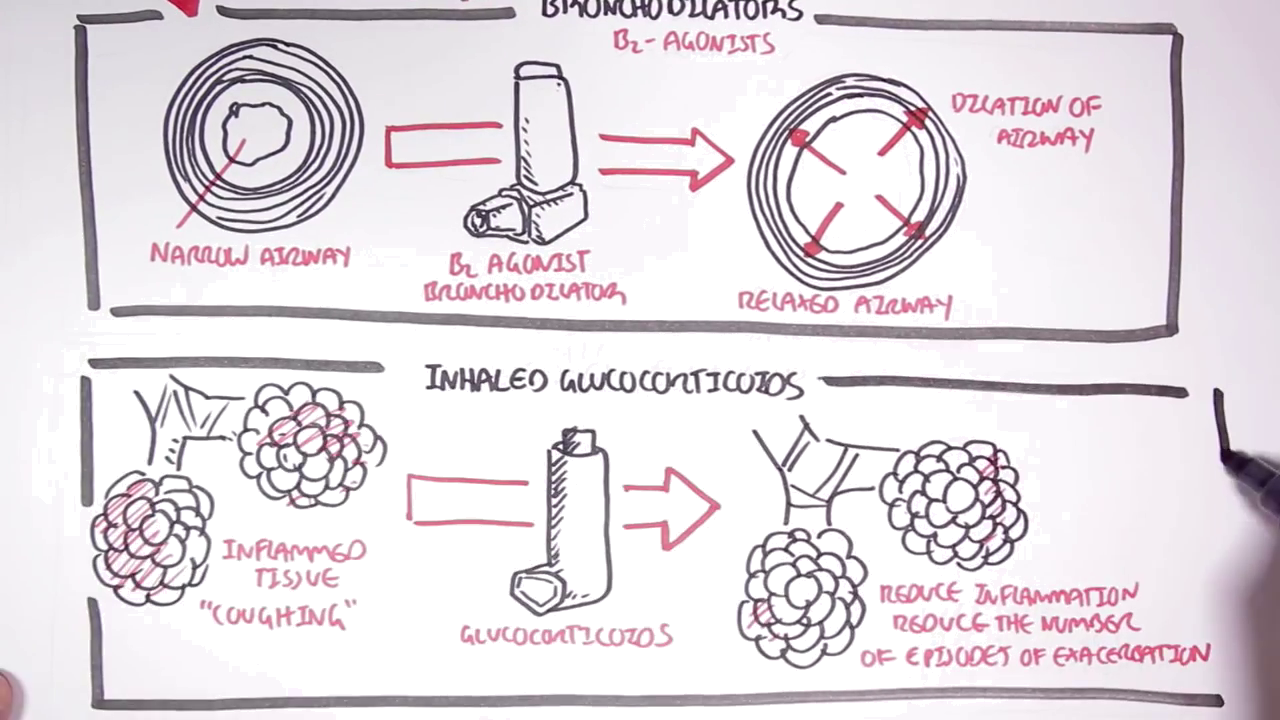 BRONCHODILATORS
B2-AGONISTS
DILATION OF
AIRWAY
NARROW AIRWAY
B2 AGONIST
BRONCHODILATOR
RELAXED AIRWAY
INHALED GLUCOCORTICOIDS
INFLAMMED
TISSUE
"COUGHING"
GLUCOCORTICOIDS
REDUCE INFLAMMATION
REDUCE THE NUMBER
OF EPISODES OF EXACERBATION